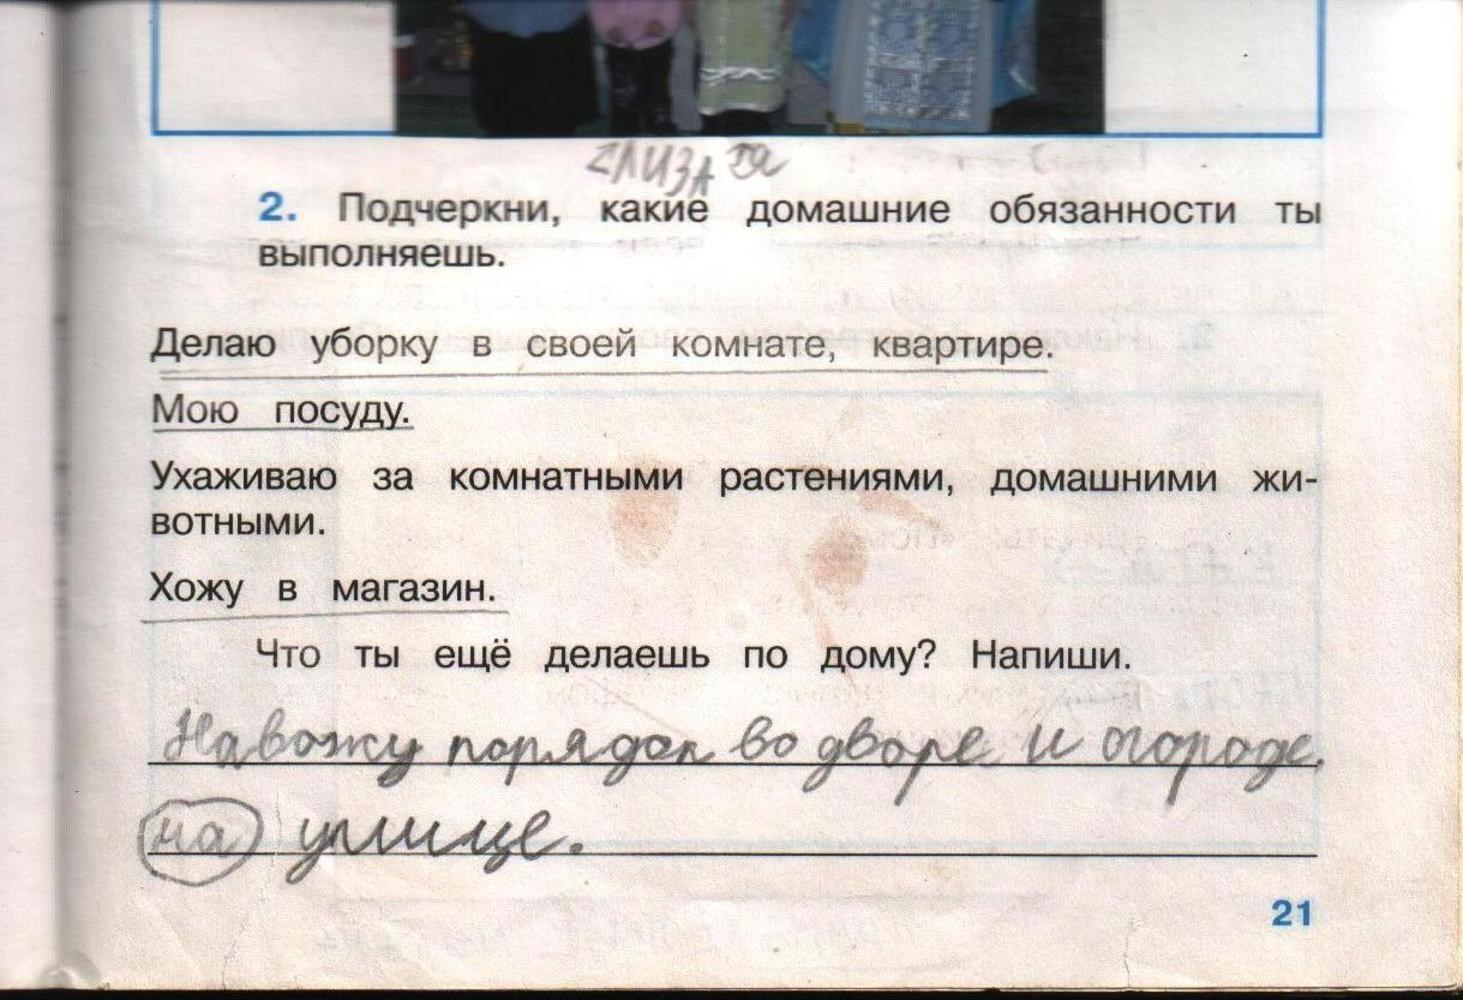 ЕЛИЗА Я
2. Подчеркни, какие домашние обязанности ты
выполняешь.
Делаю уборку в своей комнате, квартире.
Мою посуду.
Ухаживаю за комнатными растениями, домашними жи-
вотными.
Хожу в магазин.
Что ты ещё делаешь по дому? Напиши.
Навожу порядок во дворе и огороде,
на улице.
21